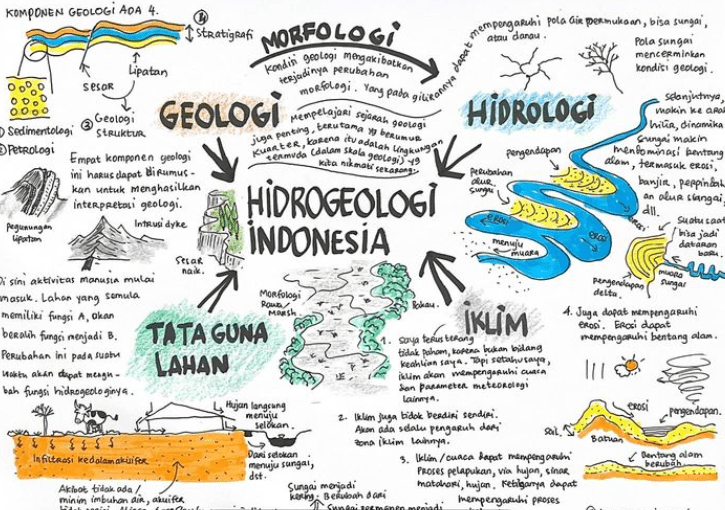 KOMPONEN GEOLOGI ADA 4.
④
Stratigrafi
Lipatan
sesar
③ Geologi
Struktur.
① Sedimentologi
② Petrologi
MORFOLOGI
Kondisi geologi mengakibatkan
terjadinya perubahan
morfologi. Yang pada gilirannya dapat mempengaruhi pola air permukaan, bisa sungai,
atau danau.
Pola sungai
mencerminkan
kondisi geologi.
GEOLOGI
Mempelajari sejarah geologi
juga penting, terutama yg berumur
Kuarter, karena itu adalah lingkungan
termuda (dalam skala geologi) yg
kita nikmati sekarang.
HIDROLOGI
selanjutnya,
makin ke arah
hilir, dinamika
sungai makin
mendominasi bentang
alam, termasuk erosi,
banjir, perpindah
an alur sungai,
dll.
Pengendapan
Perubahan
alur
sungai
erosi
erosi
erosi
menuju
muara
Suatu saat
bisa jadi
dataran
baru.
muara
sungai
pengendapan
delta
Empat komponen geologi
ini harus dapat dirumus-
kan untuk menghasilkan
interpretasi geologi.
pegunungan
lipatan
Intrusi dyke
Sesar
naik.
HIDROGEOLOGI
INDONESIA
Di sini aktivitas manusia mulai
masuk. Lahan yang semula
memiliki fungsi A, akan
beralih fungsi menjadi B.
Perubahan ini pada suatu
waktu akan dapat mengu-
bah fungsi hidrogeologinya.
TATA GUNA
LAHAN
Morfologi
Rawa/
Marsh
Bakau.
IKLIM
1. Saya terus terang
tidak paham, karena bukan bidang
keahlian saya. Tapi setahu saya,
iklim akan mempengaruhi cuaca
dan parameter meteorologi
lainnya.
2. Iklim juga tidak berdiri sendiri.
Akan ada selalu pengaruh dari
zona iklim lainnya.
3. Iklim/cuaca dapat mempengaruhi
Proses pelapukan, via hujan, sinar
matahari, hujan. Ketiganya dapat
mempengaruhi proses
4. Juga dapat mempengaruhi
erosi. Erosi dapat
mempengaruhi bentang alam.
erosi
pengendapan.
Soil
Batuan
Bentang alam
berubah.
Hujan langsung
menuju
selokan.
Dari selokan
menuju sungai,
dst.
Infiltrasi kedalam akuifer
Akibat tidak ada/
minim imbuhan air, akuifer
Sungai menjadi
kering. Berubah dari
sungai permanen menjadi